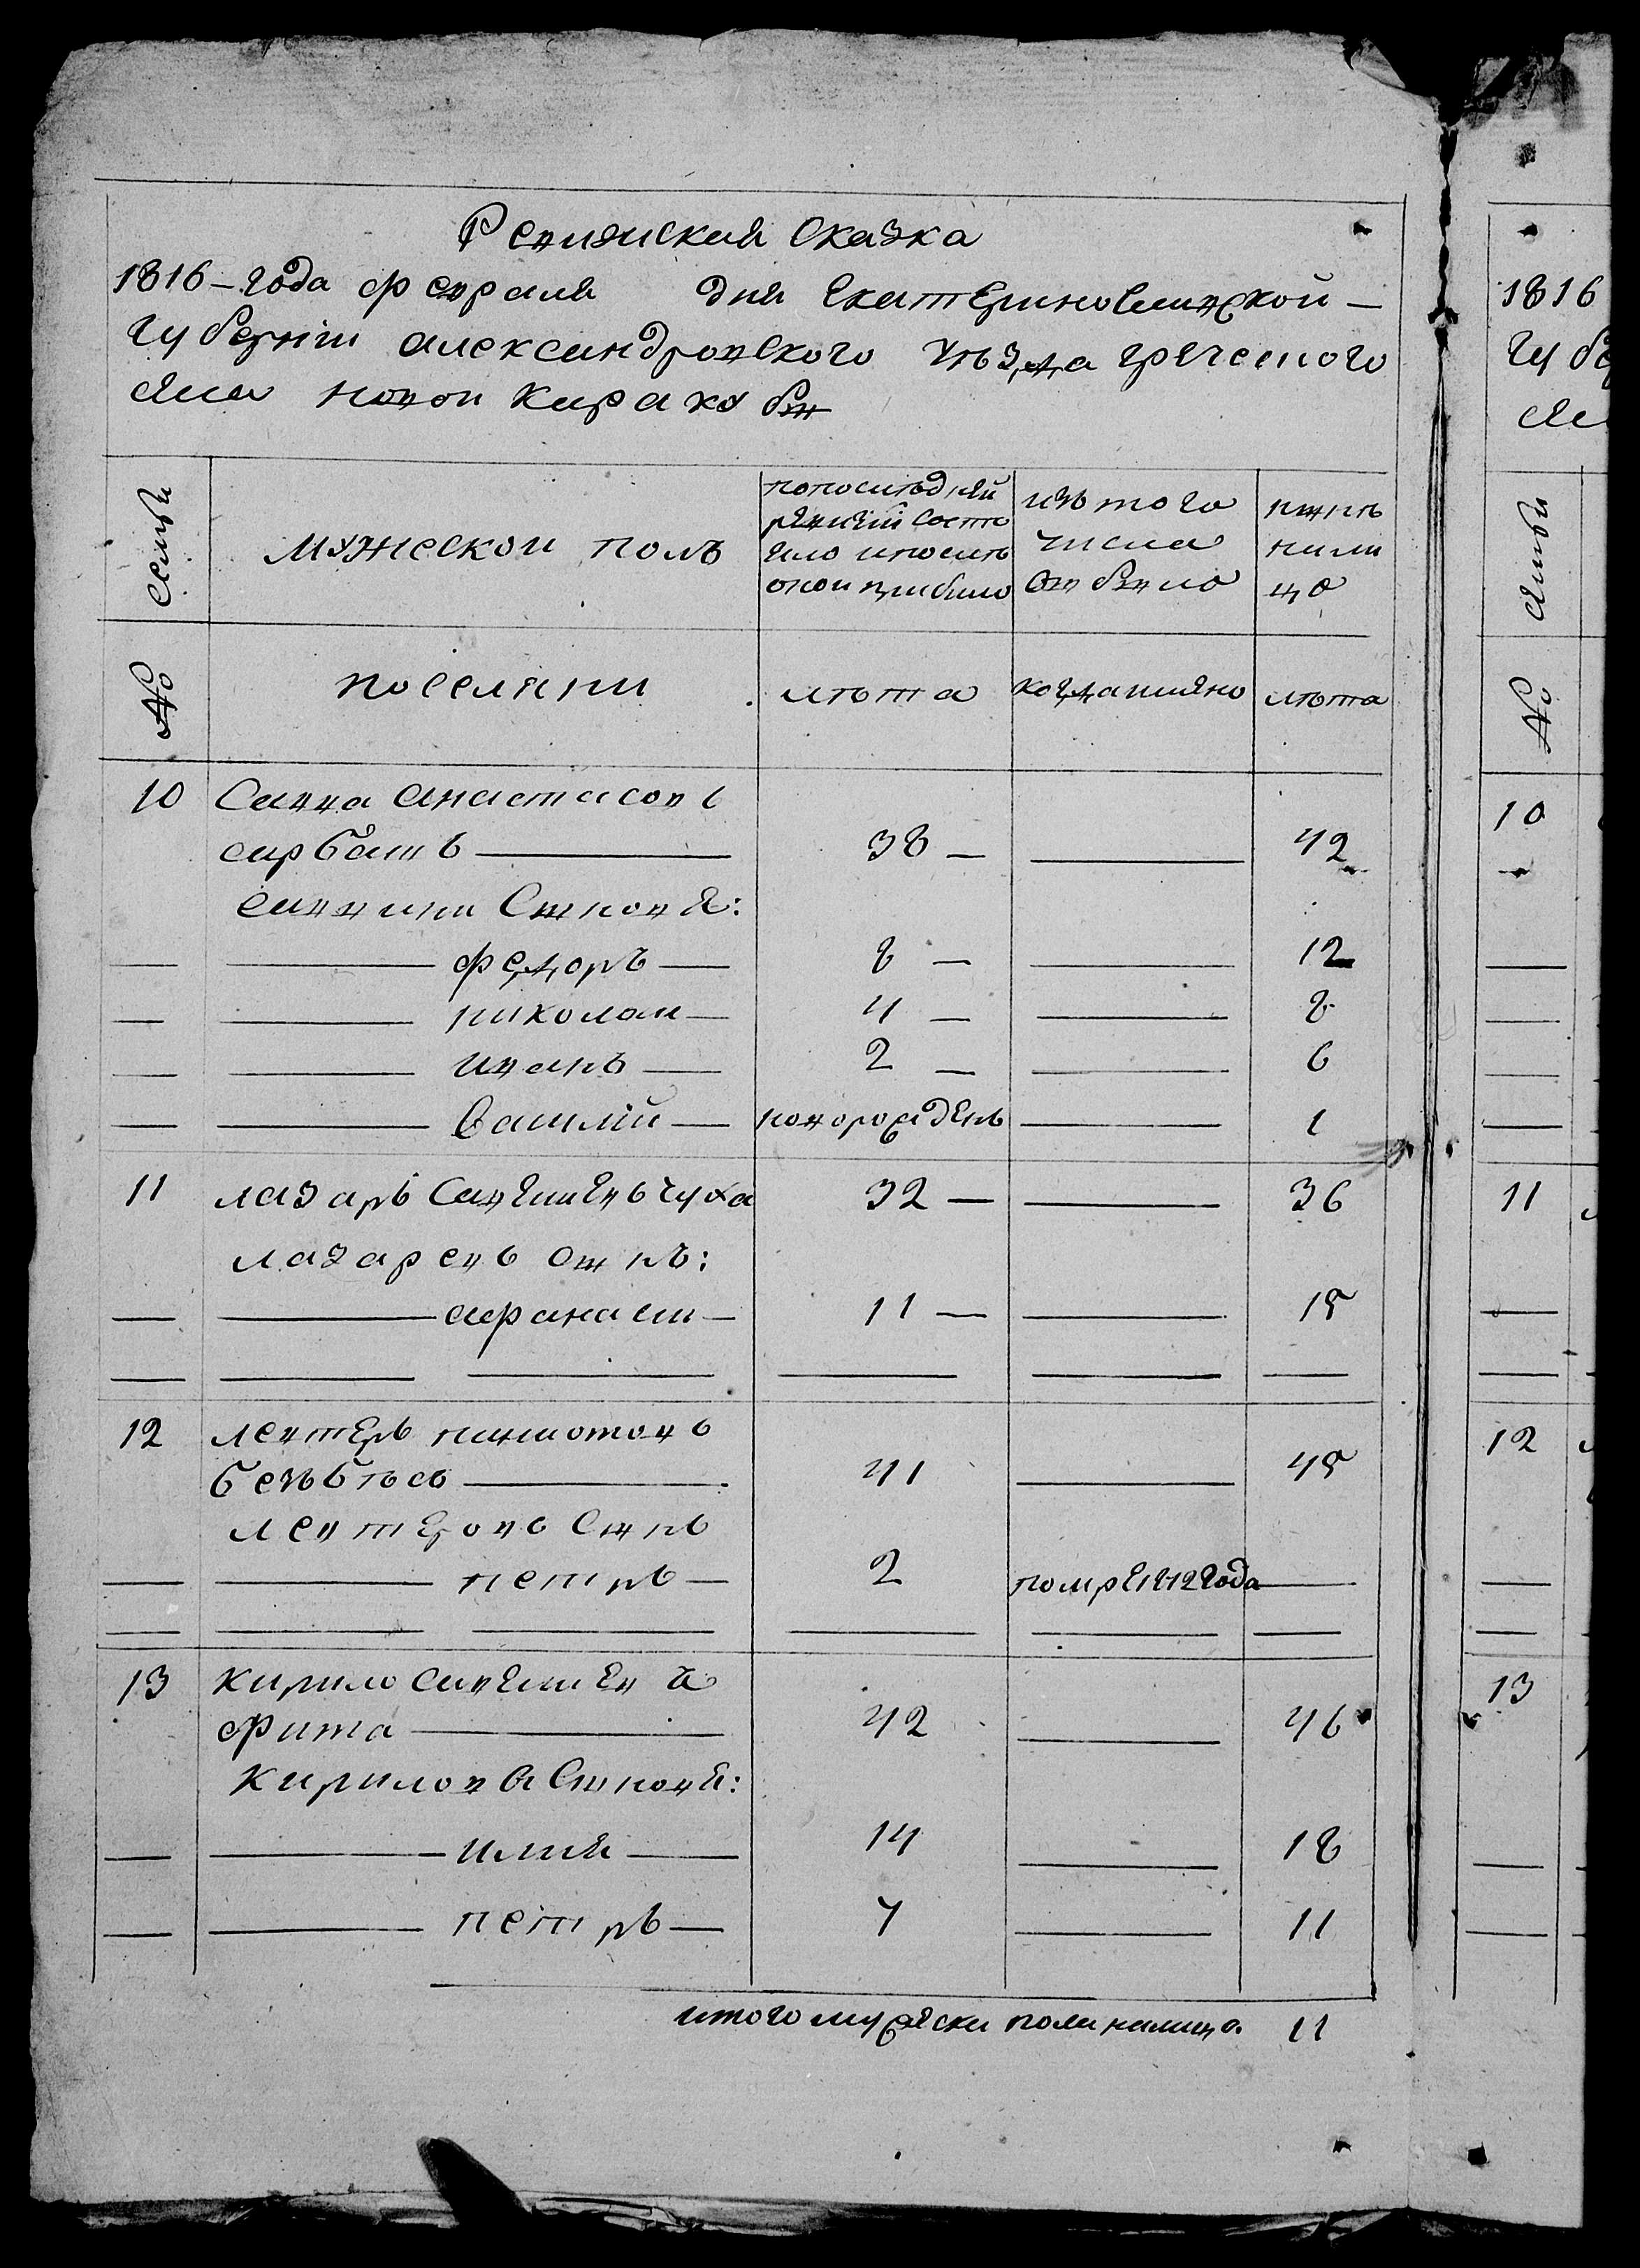 Ревизская Сказка
1816-года февраля дня Екатеринославской-
Губернии александровского уезда греческого
села новой Каракубы
Семьи
мужескои полъ
попоследней
ревизии состо
яло ипосле
онои прибыло
изъ того
числа
выбыло
ныне
нали
цо
№
поселяни
лѣта
когда имяно
лѣта
10 Савва анастасовъ
арбатъ 38 — 42
саввини Сыновя:
федоръ 8 — 12
николаи 4 — 8
иванъ 2 — 6
Василий новорожденъ 1
11 лазарь Савелиевъ чуха 32 — 36
лазаревъ сынъ:
афанаси 11 — 15
12 левтеръ панаотовъ
41 45
левтеровъ Сынъ
петръ 2 помре 1812 года
13 кирило савелиевъ
фита 42 46
Кириловы Сыновя:
илия 14 18
петръ 7 11
итого мужеска пола налицо. 11
1816
Губе
се
Семьи
№
10
11
12
13